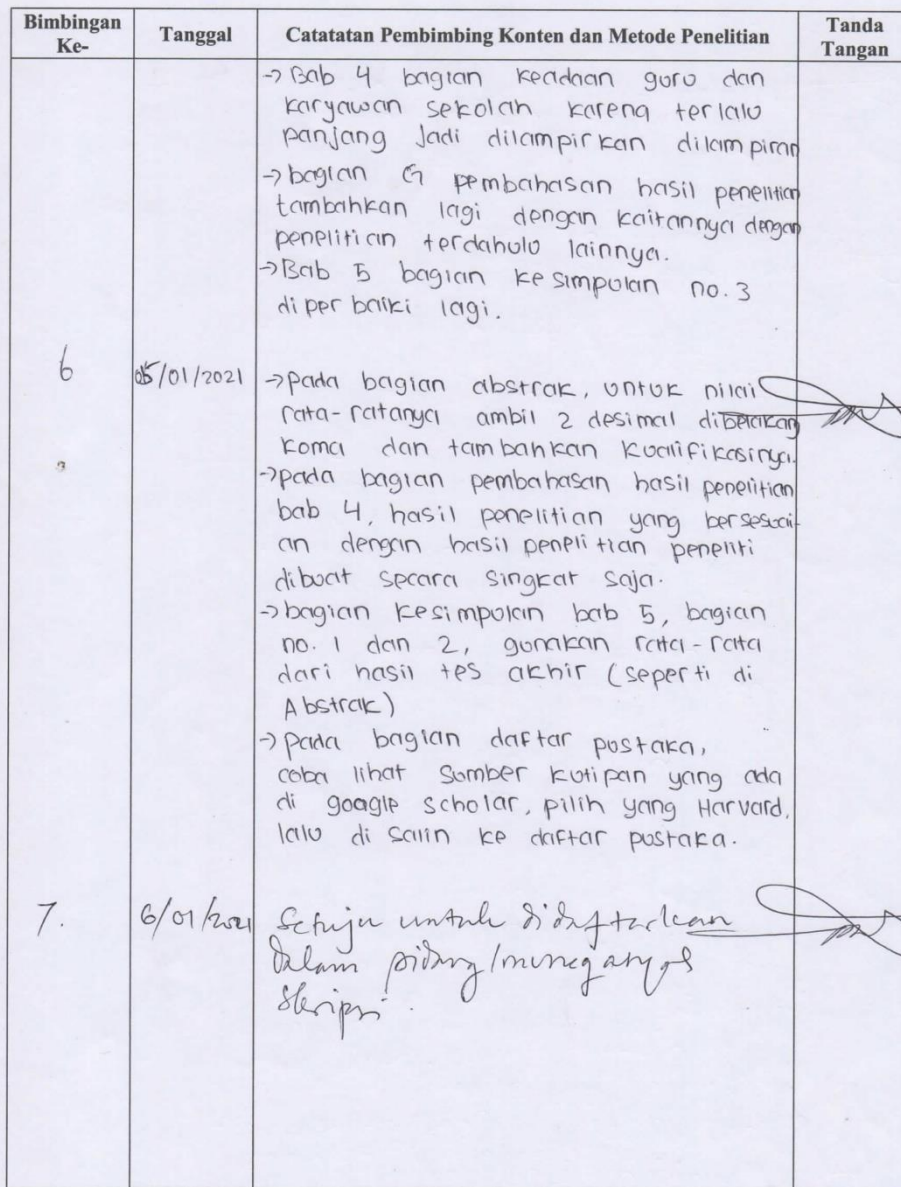 Bimbingan Ke-
Tanggal
Catatatan Pembimbing Konten dan Metode Penelitian
Tanda Tangan
-> Bab 4 bagian keadaan guru dan
karyawan sekolah karena terlalu
panjang Jadi dilampirkan dilampiran
-> bagian G pembahasan hasil penelitian
tambahkan lagi dengan kaitannya dengan
penelitian terdahulu lainnya.
-> Bab 5 bagian kesimpulan no. 3
diperbaiki lagi.
6
05/01/2021
-> pada bagian abstrak, untuk nilai
rata-ratanya ambil 2 desimal dibelakang
koma dan tambahkan kualifikasinya.
-> pada bagian pembahasan hasil penelitian
bab 4, hasil penelitian yang bersesuai-
an dengan hasil penelitian peneliti
dibuat secara singkat saja.
-> bagian kesimpulan bab 5, bagian
no. 1 dan 2, gunakan rata-rata
dari hasil tes akhir (seperti di
Abstrak)
-> pada bagian daftar pustaka,
coba lihat sumber kutipan yang ada
di google scholar, pilih yang Harvard,
lalu di salin ke daftar pustaka.
7.
6/01/2021
Setuju untuk didaftarkan
dalam sidang/munaqasyah
skripsi.